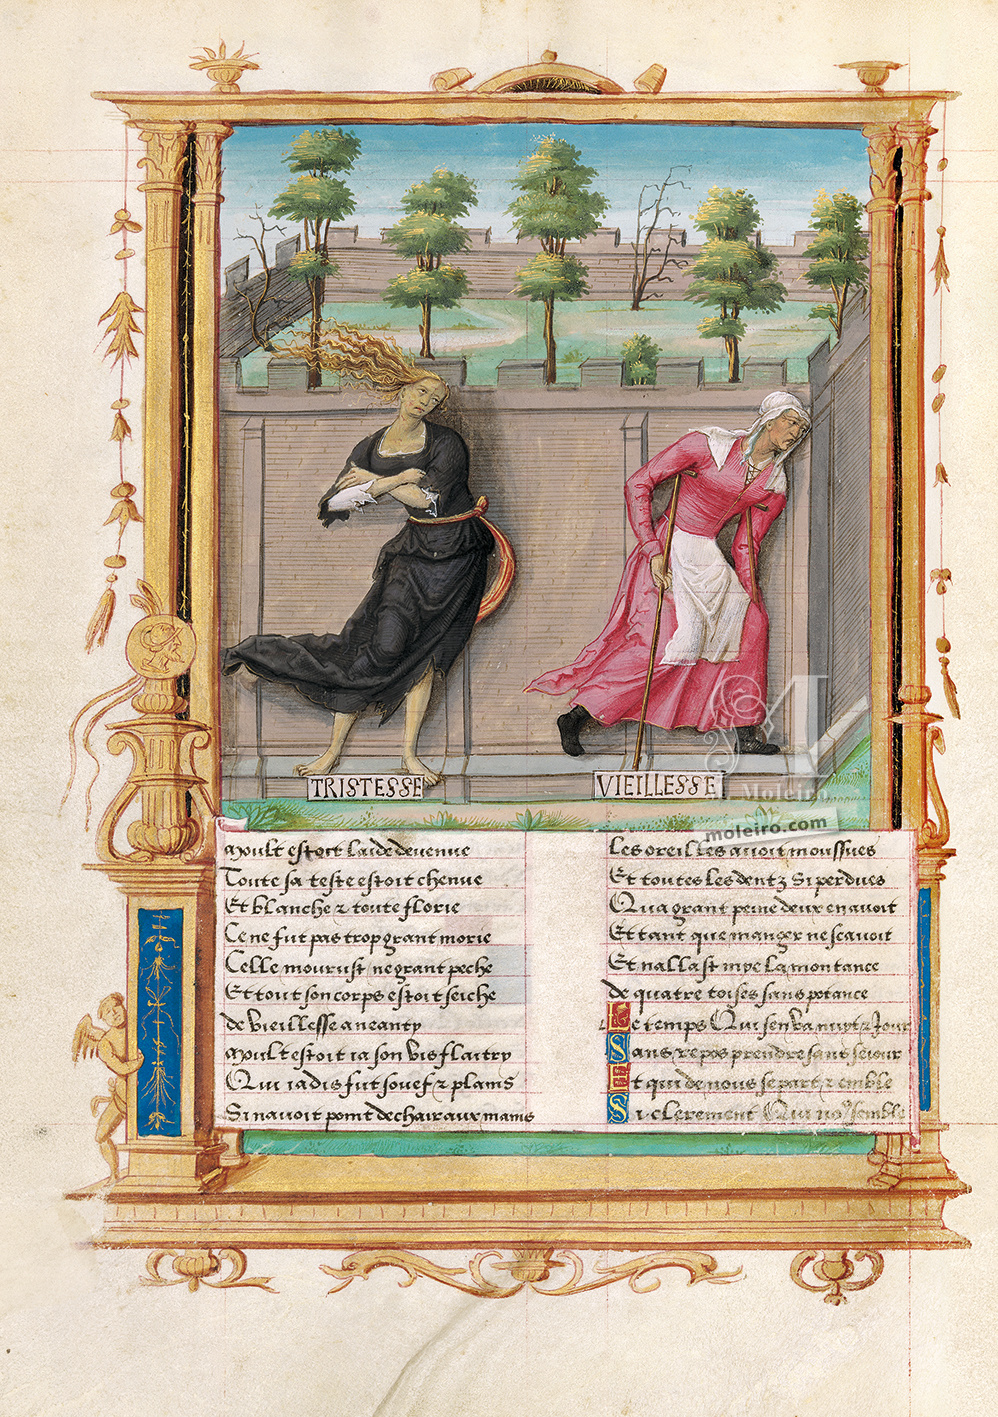 TRISTESSE
VIEILLESSE
M. Moleiro
moleiro.com
Moult estoit laide devenue
Toute sa teste estoit chenue
Et blanche & toute florie
Ce ne fut pas trop grant morie
Celle mourust ne grant peche
Et tout son corps estoit seiche
de vieillesse aneanty
Moult estoit ia son vis flaitry
Qui iadis fut souef & plains
Si navoit point de chair aux mains
Les oreilles avoit moussues
Et toutes les dentz si perdues
Qua grant peine deux en avoit
Et tant que manger ne scavoit
Et nallast mye la montance
de quatre toises sans potance
Le temps Qui sen va nuyt & Jour
Sans repos prendre sans seiour
Et qui de nous se part & emble
Si clerement Qui no⁹ semble